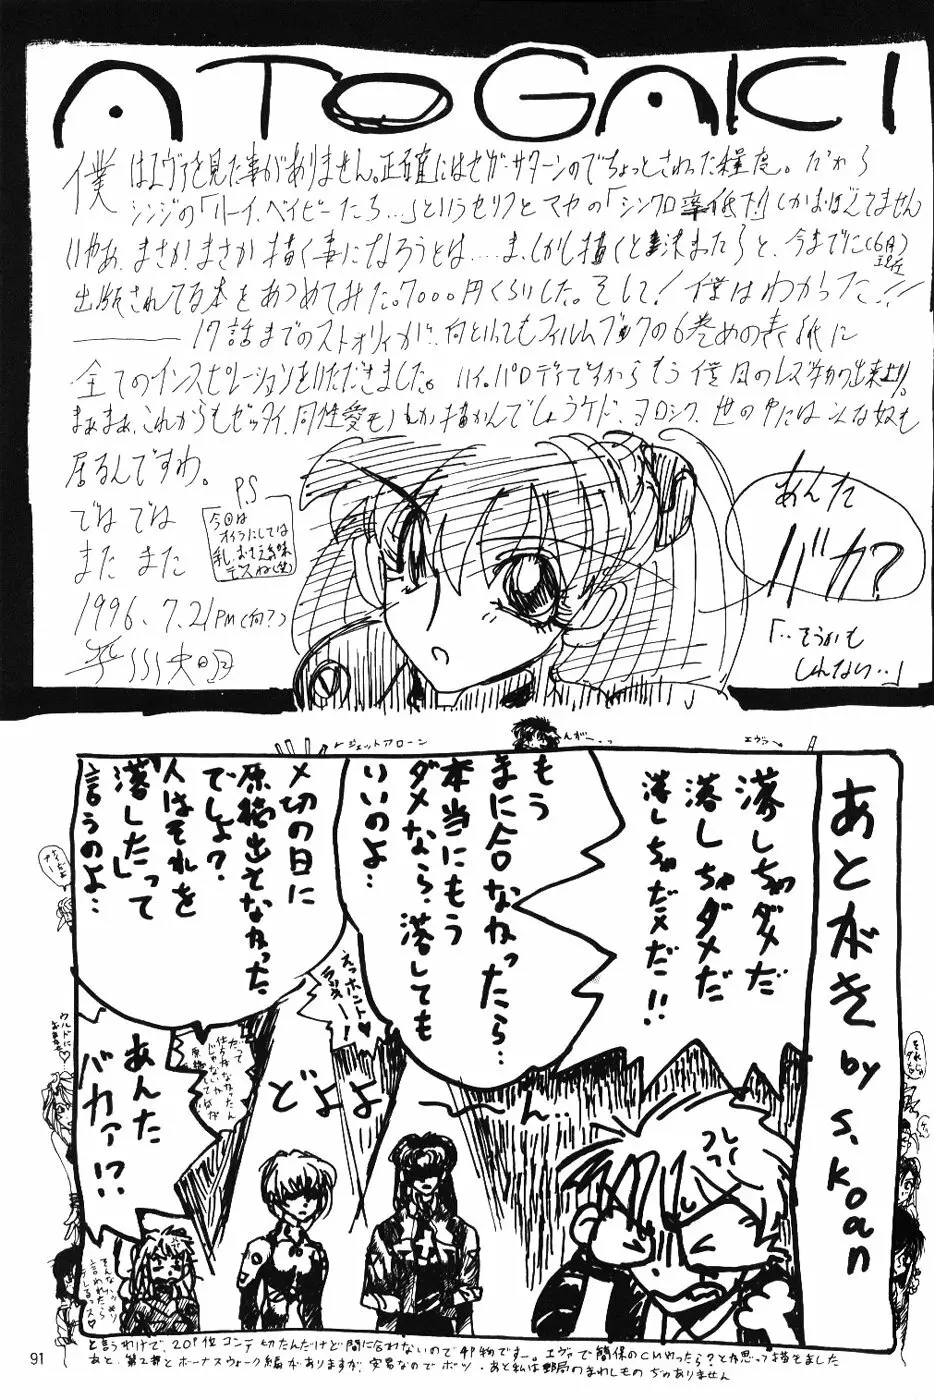 ATOGAKI
僕はエヴァを見た事がありません。正確にはセガ・サターンのでちょっとさわった程度。だから
シンジの「ハーイ、ベイビーたち…」というセリフとマヤの「シンクロ率低下!」しかおぼえてません
いやあ、まさか、まさか描く事になろうとは……ま、しかし描くと決まったらと、今までに(6月現在)
出版されてる本をあつめてみた。7000円くらいした。そして!僕はわかった!!
――17話までのストオリィがに、何といってもフィルムブックの6巻めの表紙に
全てのインスピレーションをいただきました。ハイ。パロディですからもう僕風のレズ物の出来上り。
まぁまぁ、これからもゼッタイ、同性愛モノしか描かんでしょうケド、ヨロシク、世の中にはこんな奴も
居るんですわ。
ではでは
また また
1996.7.21 PM(何?)
P.S
今回は
オイラにしては
乳、おさえ気味
デスね(笑)
あんた
バカ?
「‥そうかも
しれない‥」
ジェットアローン
エヴァ
あとがき by S.Koan
落しちゃダメだ
落しちゃダメだ
落しちゃだメだ!!
もう
まに合なかったら…
本当にもう
ダメなら、落しても
いいのよ…
〆切の日に
原稿出さなかった
でしょ?
人はそれを
「落した」って
言うのよ…
えっホント♥
ラッキー!
どよよーーん‥
あんた
バカァ!?
と言うわけで、20P位コンテ切たんだけど間に合わないので4P物ですー。エヴァで簡保のCMやったら?とか思って描きました
あと、第2部とボーナスウォーク編がありますが、安易なのでボツ・あと私は野局のまわしものぢゃありません
91